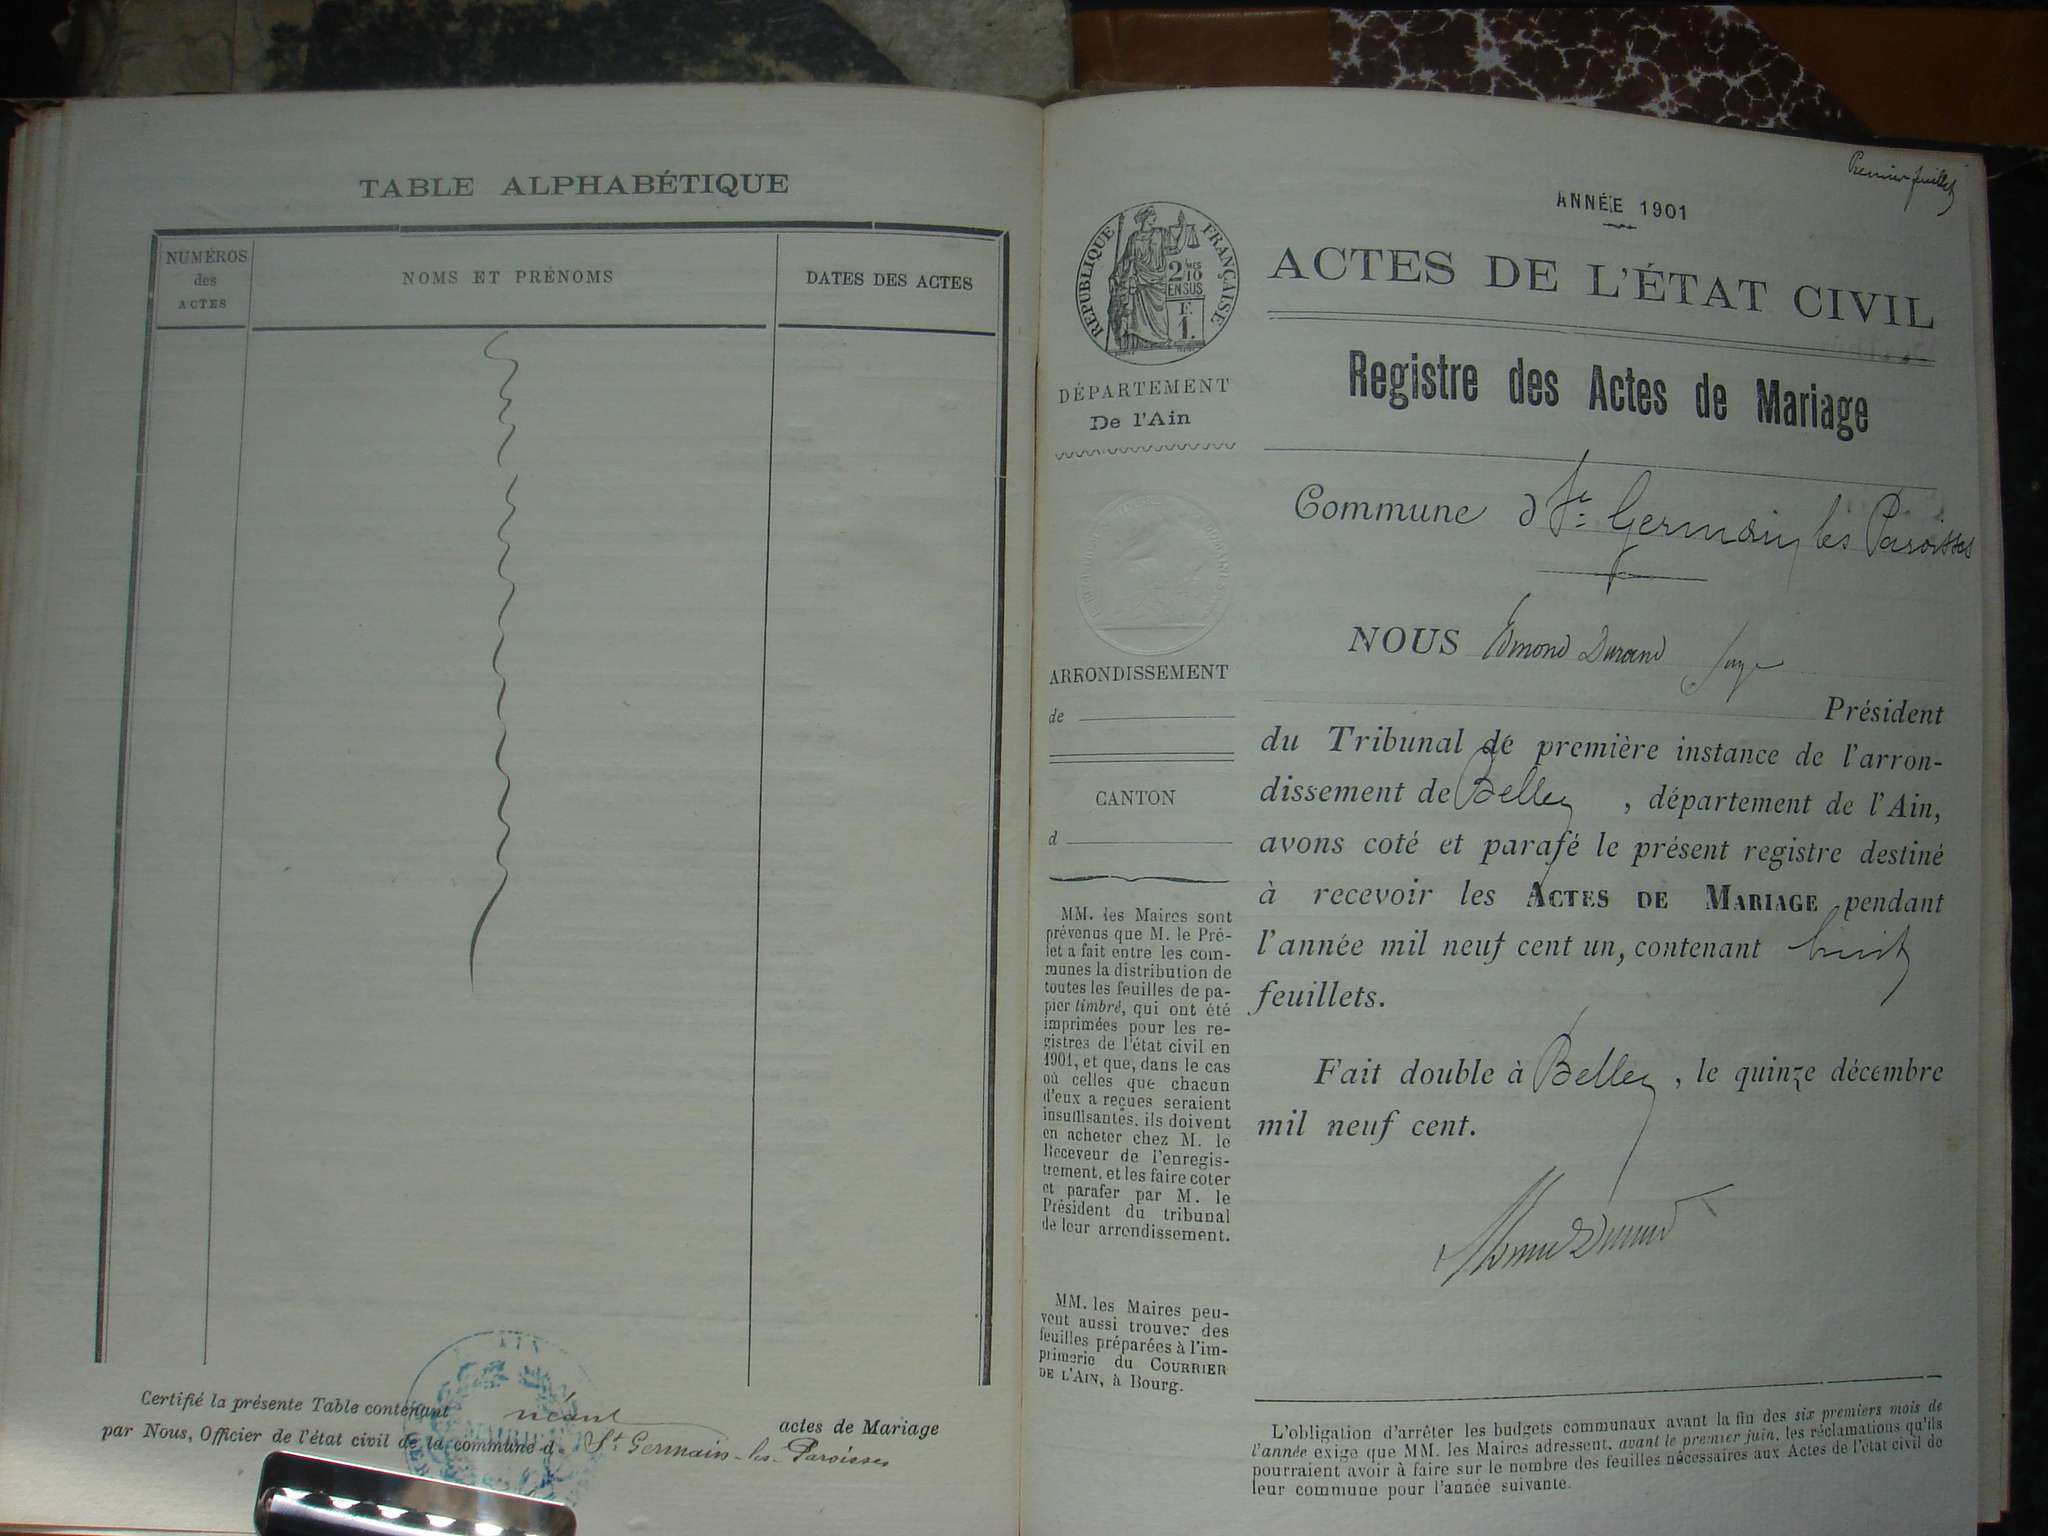 TABLE ALPHABÉTIQUE
NUMÉROS
des
ACTES
NOMS ET PRÉNOMS
DATES DES ACTES
Certifié la présente Table contenant néant actes de Mariage
par Nous, Officier de l'état civil de la commune d St Germain-les-Paroisses
MAIRIE
Premier feuillet
ANNÉE 1901
RÉPUBLIQUE FRANÇAISE
2/10mes
EN SUS
F.
1.
ACTES DE L'ÉTAT CIVIL
Registre des Actes de Mariage
DÉPARTEMENT
De l'Ain
Commune d St Germain les Paroisses
NOUS Edmond Durand Juge
Président
du Tribunal de première instance de l'arron-
dissement de Belley, département de l'Ain,
avons coté et parafé le présent registre destiné
à recevoir les ACTES DE MARIAGE pendant
l'année mil neuf cent un, contenant huit
feuillets.
Fait double à Belley, le quinze décembre
mil neuf cent.
ARRONDISSEMENT
de
CANTON
d
MM. les Maires sont
prévenus que M. le Pré-
fet a fait entre les com-
munes la distribution de
toutes les feuilles de pa-
pier timbré, qui ont été
imprimées pour les re-
gistres de l'état civil en
1901, et que, dans le cas
où celles que chacun
d'eux a reçues seraient
insuffisantes, ils doivent
en acheter chez M. le
Receveur de l'enregis-
trement, et les faire coter
et parafer par M. le
Président du tribunal
de leur arrondissement.
MM. les Maires peu-
vent aussi trouver des
feuilles préparées à l'im-
primerie du COURRIER
DE L'AIN, à Bourg.
L'obligation d'arrêter les budgets communaux avant la fin des six premiers mois de
l'année exige que MM. les Maires adressent, avant le premier juin, les réclamations qu'ils
pourraient avoir à faire sur le nombre des feuilles nécessaires aux Actes de l'état civil de
leur commune pour l'année suivante.